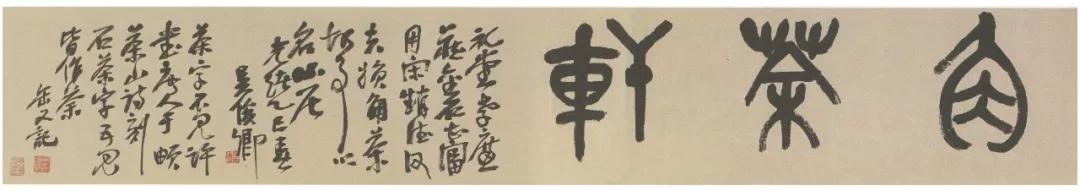 角茶軒
礼堂孝廉
藏金石甚富
用宋趙德父
夫婦角茶
故事以
名山居
光緒乙巳春
吳俊卿
茶字不見許
書唐人于頔
茶山詩刻
石茶字五見
皆作荼
缶又記